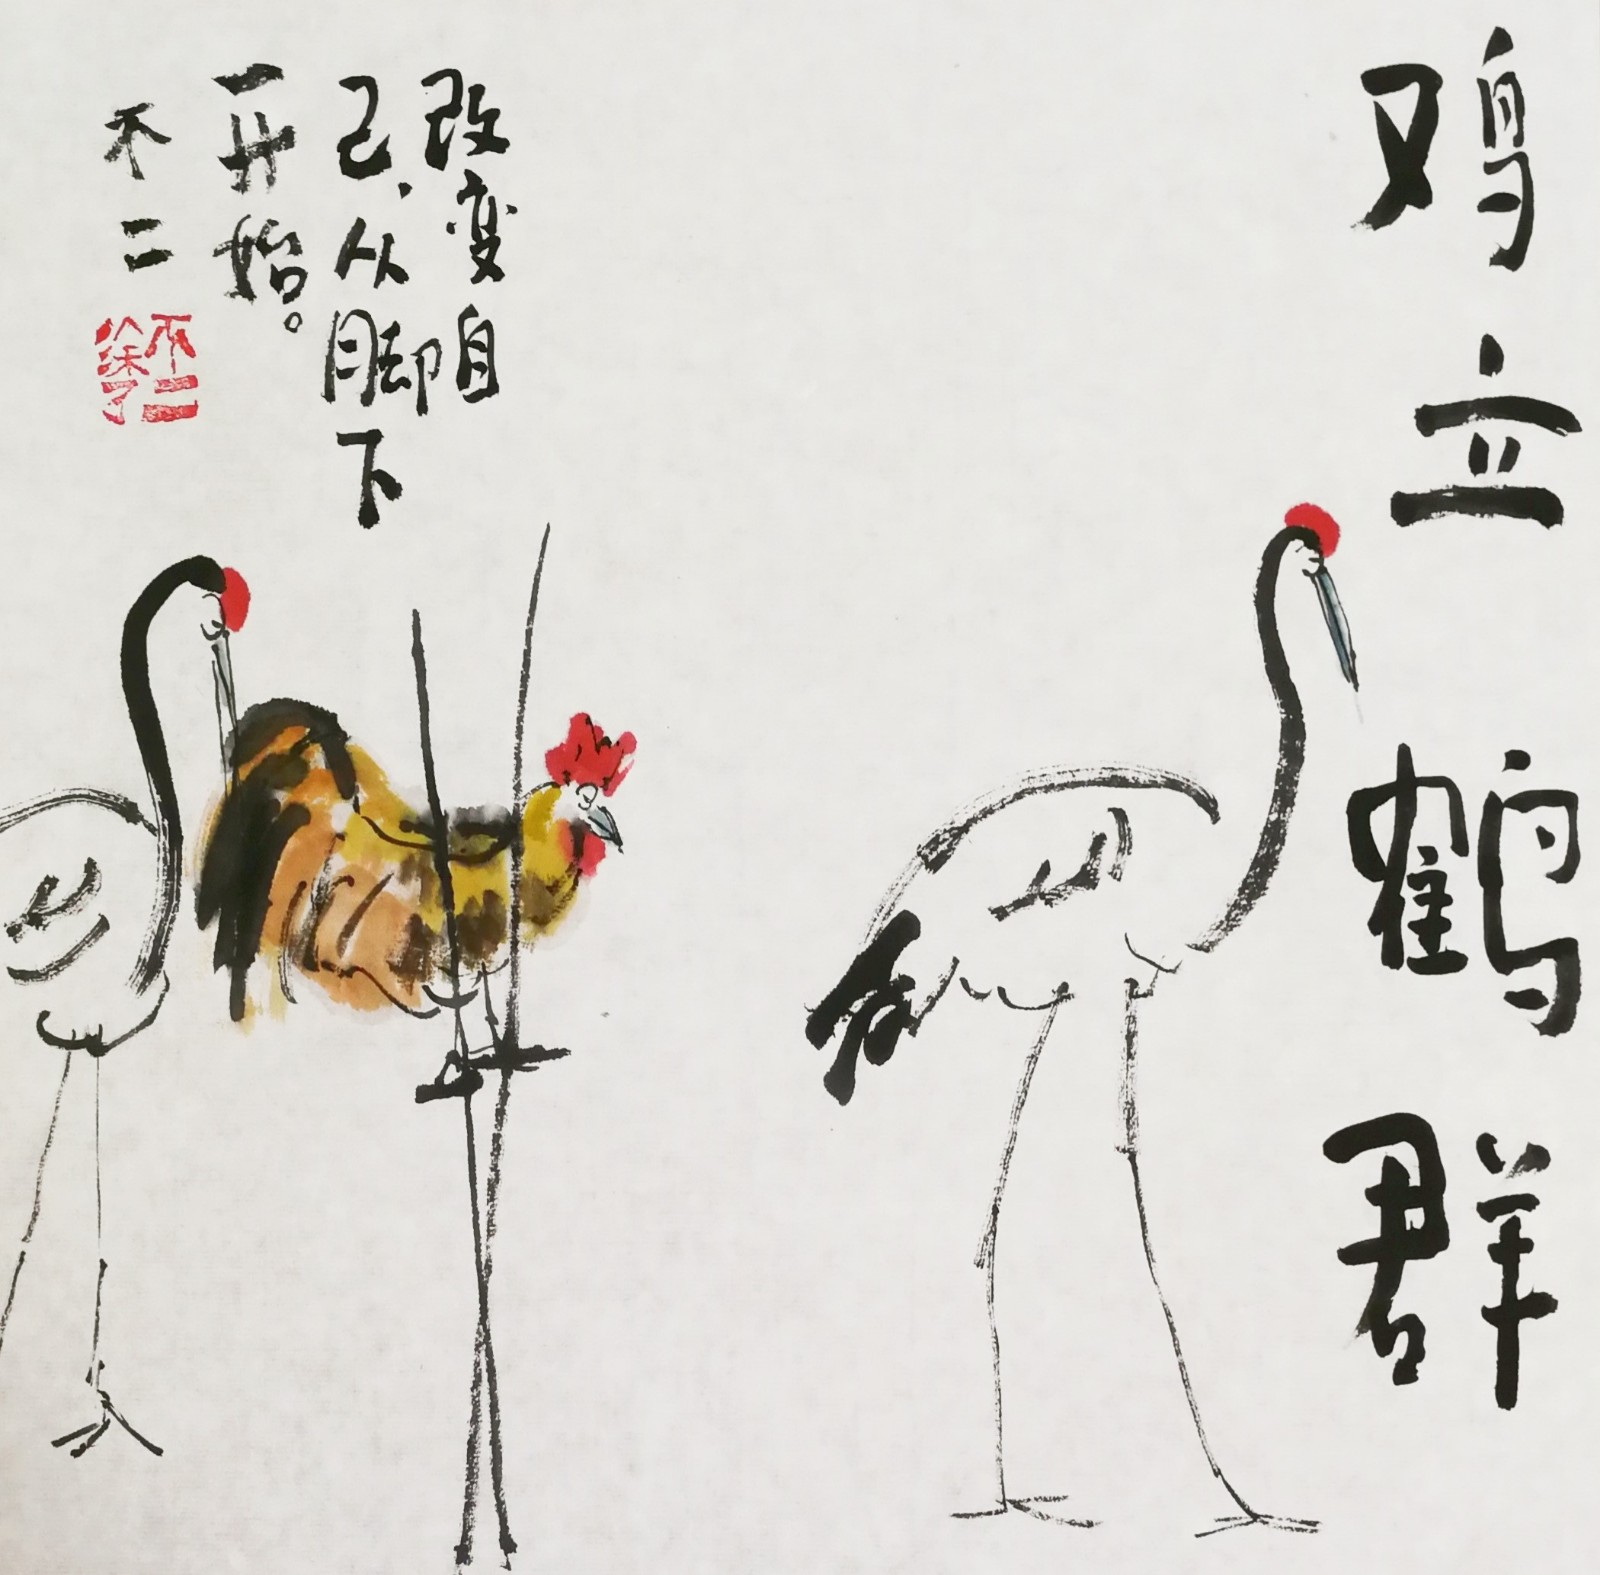 鸡立鹤群
改变自
己，从脚下
开始。
不二
不二